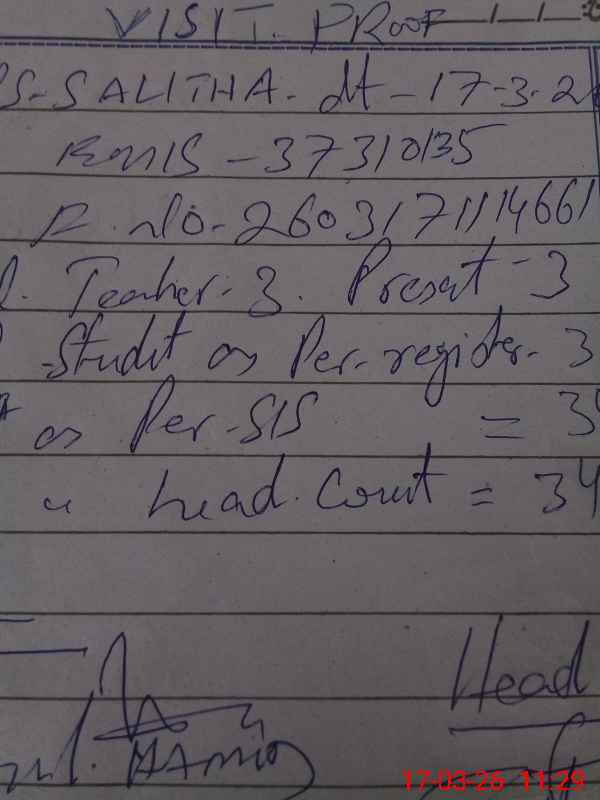 VISIT. PROOF
PS-SALITHA. dt - 17-3-2
EMIS - 37310135
F. No- 2603171114661
Teacher- 3. Present - 3
Studt as Per-register- 3
as Per-SIS = 3
" head. Count = 34
Head
17-03-26 11:29